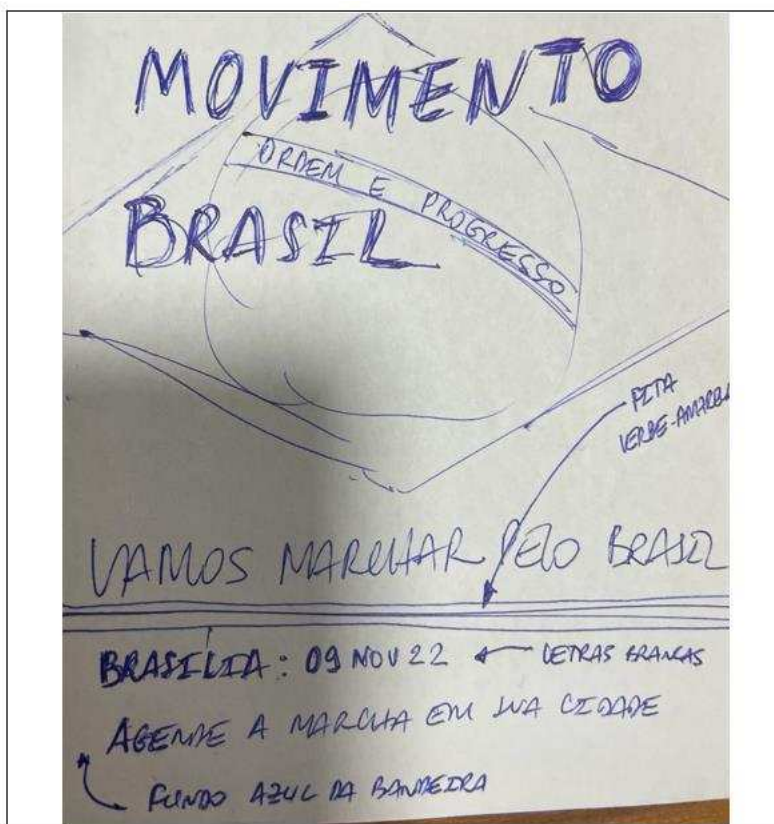 MOVIMENTO
ORDEM E PROGRESSO
BRASIL
FITA
VERDE-AMARELA
VAMOS MARCHAR PELO BRASIL
BRASÍLIA: 09 NOV 22 ← LETRAS BRANCAS
AGENDE A MARCHA EM SUA CIDADE
FUNDO AZUL DA BANDEIRA